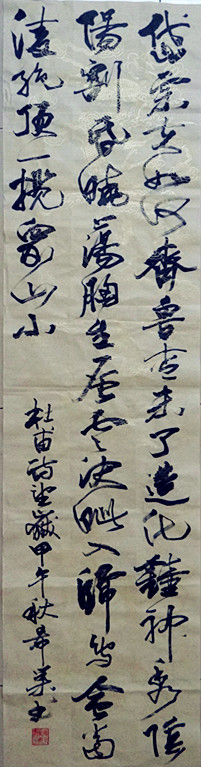 岱宗夫如何齊魯青未了造化鍾神秀陰
陽割昏曉蕩胸生層雲決眦入歸鳥會當
淩絕頂一覽眾山小
杜甫詩望嶽甲午秋